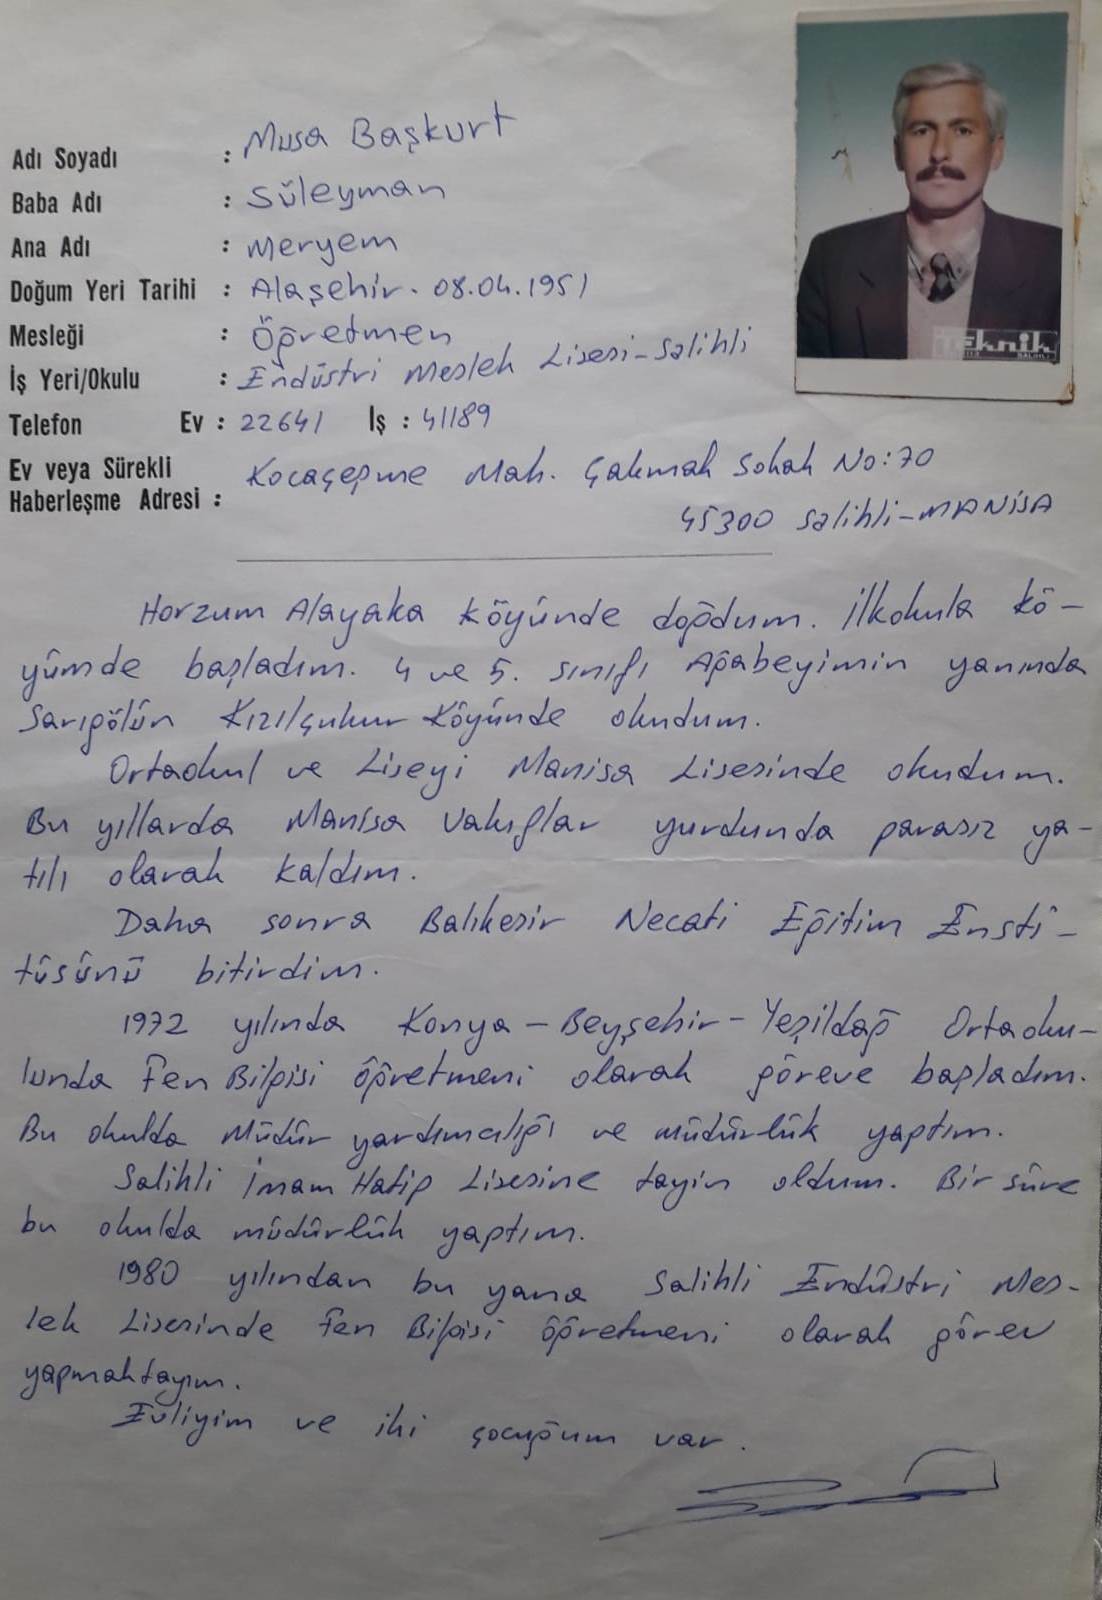 Adı Soyadı : Musa Başkurt
Baba Adı : Süleyman
Ana Adı : Meryem
Doğum Yeri Tarihi : Alaşehir. 08.04.1951
Mesleği : Öğretmen
İş Yeri/Okulu : Endüstri Meslek Lisesi-Salihli
Telefon Ev : 22641 İş : 41189
Ev veya Sürekli
Haberleşme Adresi : Kocaçeşme Mah. Çakmak Sokak No:70
45300 Salihli-MANİSA
TEKnik
SALİHLİ
Horzum Alayaka Köyünde doğdum. İlkokula Kö-
yümde başladım. 4 ve 5. sınıfı Ağabeyimin yanında
Sarıgölün Kızılçukur Köyünde okudum.
Ortaokul ve Liseyi Manisa Lisesinde okudum.
Bu yıllarda Manisa Vakıflar yurdunda parasız ya-
tılı olarak kaldım.
Daha sonra Balıkesir Necati Eğitim Ensti-
tüsünü bitirdim.
1972 yılında Konya-Beyşehir-Yeşildağ Ortaoku-
lunda Fen Bilgisi öğretmeni olarak göreve başladım.
Bu okulda Müdür yardımcılığı ve müdürlük yaptım.
Salihli İmam Hatip Lisesine tayin oldum. Bir süre
bu okulda müdürlük yaptım.
1980 yılından bu yana Salihli Endüstri Mes-
lek Lisesinde Fen Bilgisi öğretmeni olarak görev
yapmaktayım.
Evliyim ve iki çocuğum var.